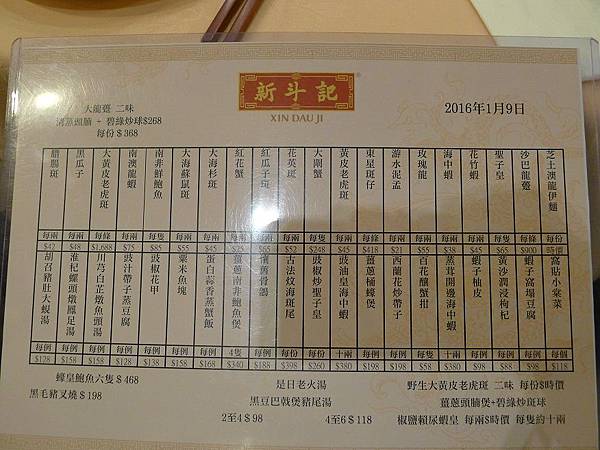 大龍躉 二味
清蒸頭腩 + 碧綠炒球$268
每份$368
新斗記
XIN DAU JI
2016年1月9日
腊腸斑 每兩 $42
黑瓜子 每兩 $48
大黃皮老虎斑 每條 $1,688
南澳龍蝦 每兩 $75
南非鮮鮑魚 每兩 $85
大海蘇鼠斑 每兩 $55
大海杉斑 每兩 $45
紅花蟹 每兩
紅瓜子斑 每兩
花英斑 每兩 $52
大閘蟹 每隻 $248
黃皮老虎斑 每兩 $45
東星斑仔 每條 $418
游水泥孟 每兩 $21
玫瑰龍 每兩 $55
海中蝦 每兩 $38
花竹蝦 每兩 $45
聖子皇 每隻 $65
沙巴龍躉 每條 $900
芝士澳龍伊麵 每份 時價
胡召豬肚大蜆湯 每例 $128
淮杞螺頭燉鳳足湯 每例 $158
川芎白芷燉魚頭湯 每例 $158
豉汁帶子蒸豆腐 每例 $128
豉椒花甲 每例 $138
粟米魚塊 每例 $158
蛋白蒜香蒸蟹飯 每例 $168
薑蔥南非鮑魚煲 4隻 $340
骨鵝 每例 $188
古法炆海斑尾 每例 $398
豉椒炒聖子皇 每例 $260
豉油皇海中蝦 十兩 $380
薑蔥桶蠔煲 每例 $198
西蘭花炒帶子 每例 $198
百花釀蟹拑 每例 $58
蒜茸開邊海中蝦 十兩 $380
蝦子柚皮 每例 $98
黃沙潤浸枸杞 每例 $88
蝦子窩塌豆腐 每例 $98
窩貼小棠菜 每個 $118
蠔皇鮑魚六隻$468
黑毛豬叉燒$198
是日老火湯
黑豆巴戟煲豬尾湯
2至4$98 4至6$118
野生大黃皮老虎斑 二味 每份$時價
薑蔥頭腩煲+碧綠炒斑球
椒鹽賴尿蝦皇 每兩$時價 每隻約十兩